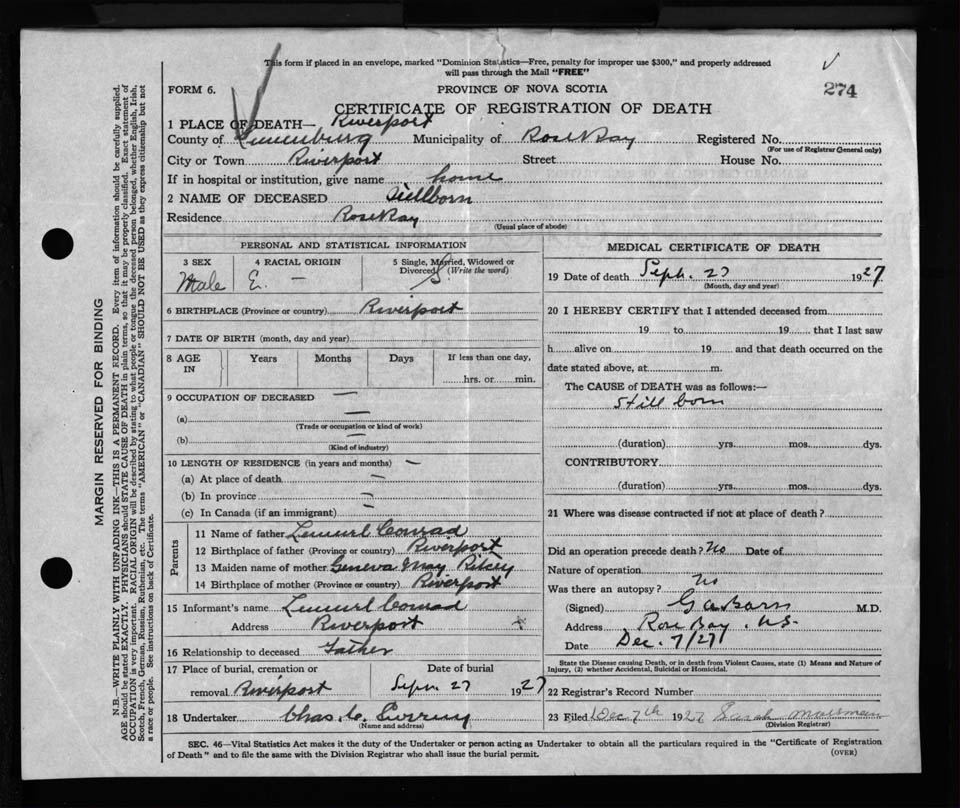 This form if placed in an envelope, marked "Dominion Statistics—Free, penalty for improper use $300," and properly addressed
will pass through the Mail "FREE"
274
FORM 6.
PROVINCE OF NOVA SCOTIA
CERTIFICATE OF REGISTRATION OF DEATH
1 PLACE OF DEATH— Riverport
County of Lunenburg Municipality of Rose Bay Registered No.
(For use of Registrar General only)
City or Town Riverport Street House No.
If in hospital or institution, give name home
2 NAME OF DECEASED Stillborn
Residence Rose Bay
(Usual place of abode)
PERSONAL AND STATISTICAL INFORMATION
3 SEX 4 RACIAL ORIGIN 5 Single, Married, Widowed or
Divorced (Write the word)
Male E. — S
6 BIRTHPLACE (Province or country) Riverport
7 DATE OF BIRTH (month, day and year)
8 AGE IN Years Months Days If less than one day,
hrs. or min.
9 OCCUPATION OF DECEASED —
(a) —
(Trade or occupation or kind of work)
(b) —
(Kind of industry)
10 LENGTH OF RESIDENCE (in years and months) —
(a) At place of death —
(b) In province —
(c) In Canada (if an immigrant) —
Parents
11 Name of father Lemuel Conrad
12 Birthplace of father (Province or country) Riverport
13 Maiden name of mother Geneva May Ritcey
14 Birthplace of mother (Province or country) Riverport
15 Informant's name Lemuel Conrad
Address Riverport
16 Relationship to deceased Father
17 Place of burial, cremation or Date of burial
removal Riverport Sept. 27 1927
18 Undertaker Chas. C.
(Name and address)
MEDICAL CERTIFICATE OF DEATH
19 Date of death Sept. 27 1927
(Month, day and year)
20 I HEREBY CERTIFY that I attended deceased from
19 to 19 that I last saw
h alive on 19 and that death occurred on the
date stated above, at m.
The CAUSE of DEATH was as follows:—
Still born
(duration) yrs. mos. dys.
CONTRIBUTORY
(duration) yrs. mos. dys.
21 Where was disease contracted if not at place of death?
Did an operation precede death? No Date of
Nature of operation
Was there an autopsy? No
(Signed) M.D.
Address Rose Bay. N.S.
Date Dec. 7/27
State the Disease causing Death, or in death from Violent Causes, state (1) Means and Nature of
Injury, (2) whether Accidental, Suicidal or Homicidal.
22 Registrar's Record Number
23 Filed Dec 7th 1927 Sarah
(Division Registrar)
SEC. 46—Vital Statistics Act makes it the duty of the Undertaker or person acting as Undertaker to obtain all the particulars required in the "Certificate of Registration
of Death" and to file the same with the Division Registrar who shall issue the burial permit.
(OVER)
MARGIN RESERVED FOR BINDING
N.B.—WRITE PLAINLY WITH UNFADING INK—THIS IS A PERMANENT RECORD. Every item of information should be carefully supplied.
AGE should be stated EXACTLY. PHYSICIANS should STATE CAUSE OF DEATH in plain terms, so that it may be properly classified. Exact statement of
OCCUPATION is very important. RACIAL ORIGIN will be described by stating to what people or tongue the deceased person belonged, whether English, Irish,
Scotch, French, German, Russian, Ruthenian, etc. The terms "AMERICAN" or "CANADIAN" SHOULD NOT BE USED as they express citizenship but not
a race or people. See instructions on back of Certificate.